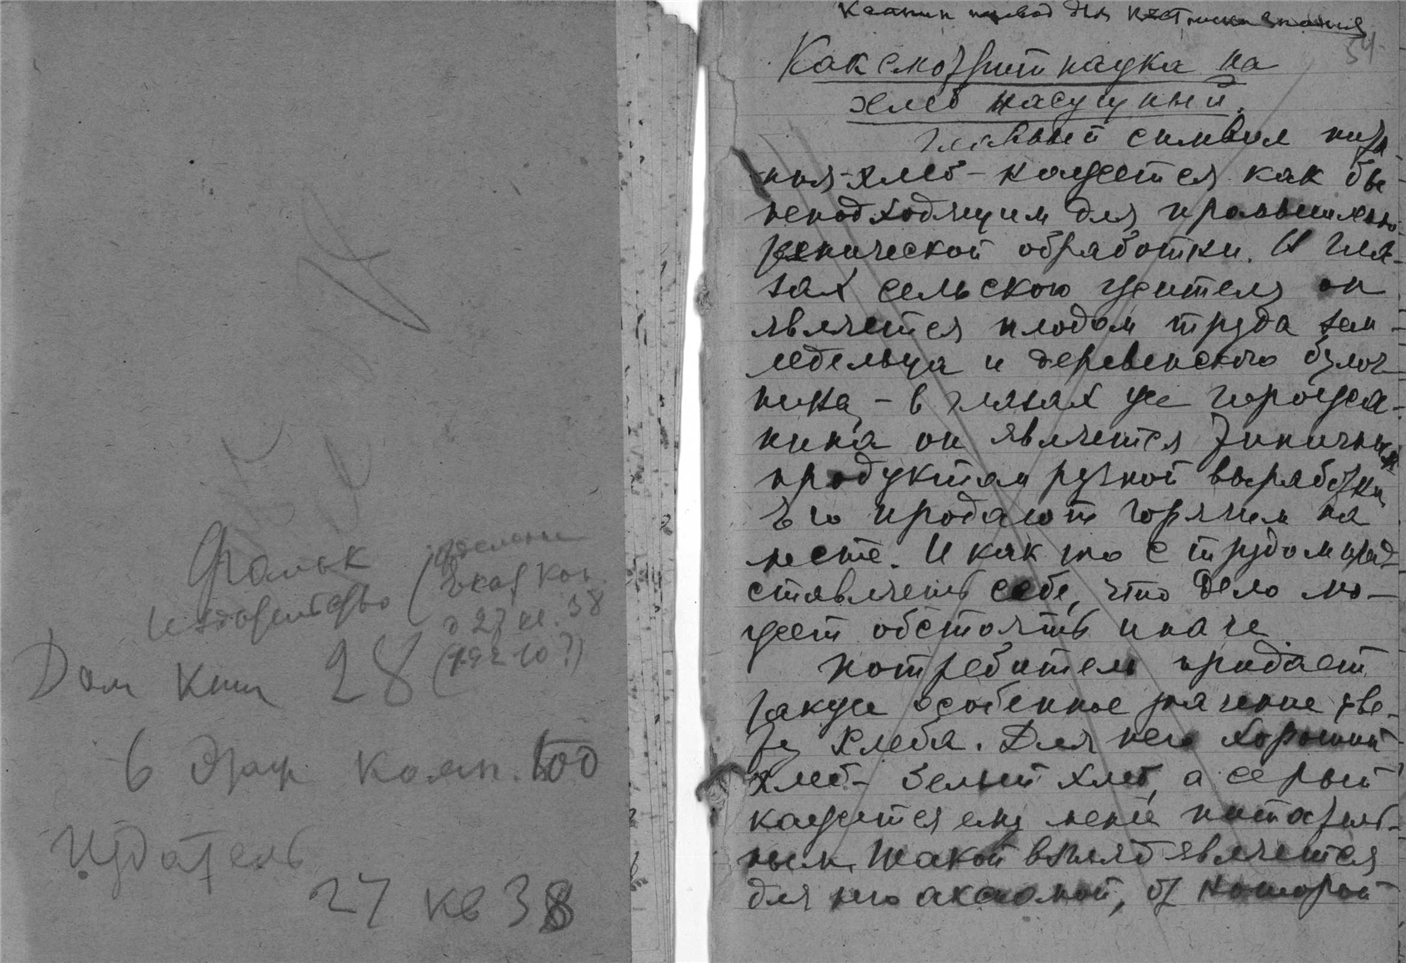 Фальк
Издательство
(отделение
с 27 кв. 38
Дом Кни 28
6 этаж комн. 600
Издатель
27 кв 38
54
Как смотрит наука на
хлеб насущный.
Главный символ пита-
ния-хлеб - кажется как бы
неподходящим для промышленно-
технической обработки. В гла-
зах сельского жителя он
является плодом труда зем-
ледельца и деревенского булоч-
ника, - в глазах же горожа-
нина он является типичным
продуктом ручной выработки
Его продают горячим на
месте. И как-то с трудом пред
ставляешь себе, что дело мо-
жет обстоять иначе.
Потребитель придает
также особенное значение цве-
ту хлеба. Для него хороший
хлеб - белый хлеб, а серый
кажется ему менее питатель-
ным. Такой взгляд является
для него аксиомой, от которой